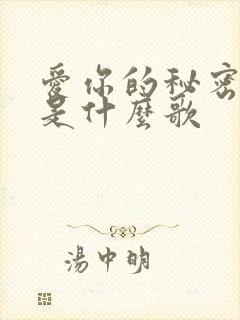 愛你的秘密
是什麼歌
湯中明